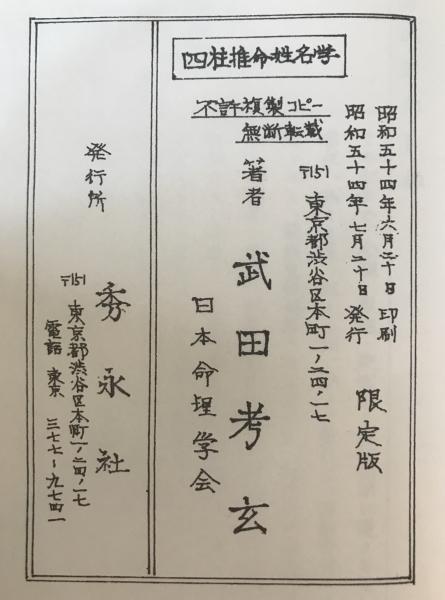 四柱推命姓名学
昭和五十四年六月二十日 印刷
昭和五十四年七月二十日 発行
限定版
不許複製コピー
無断転載
〒151 東京都渋谷区本町一ノ二四ノ一七
著者 武田考玄
日本命理学会
発行所 秀永社
〒151 東京都渋谷区本町一ノ二四ノ一七
電話 東京 三七七-九七四一